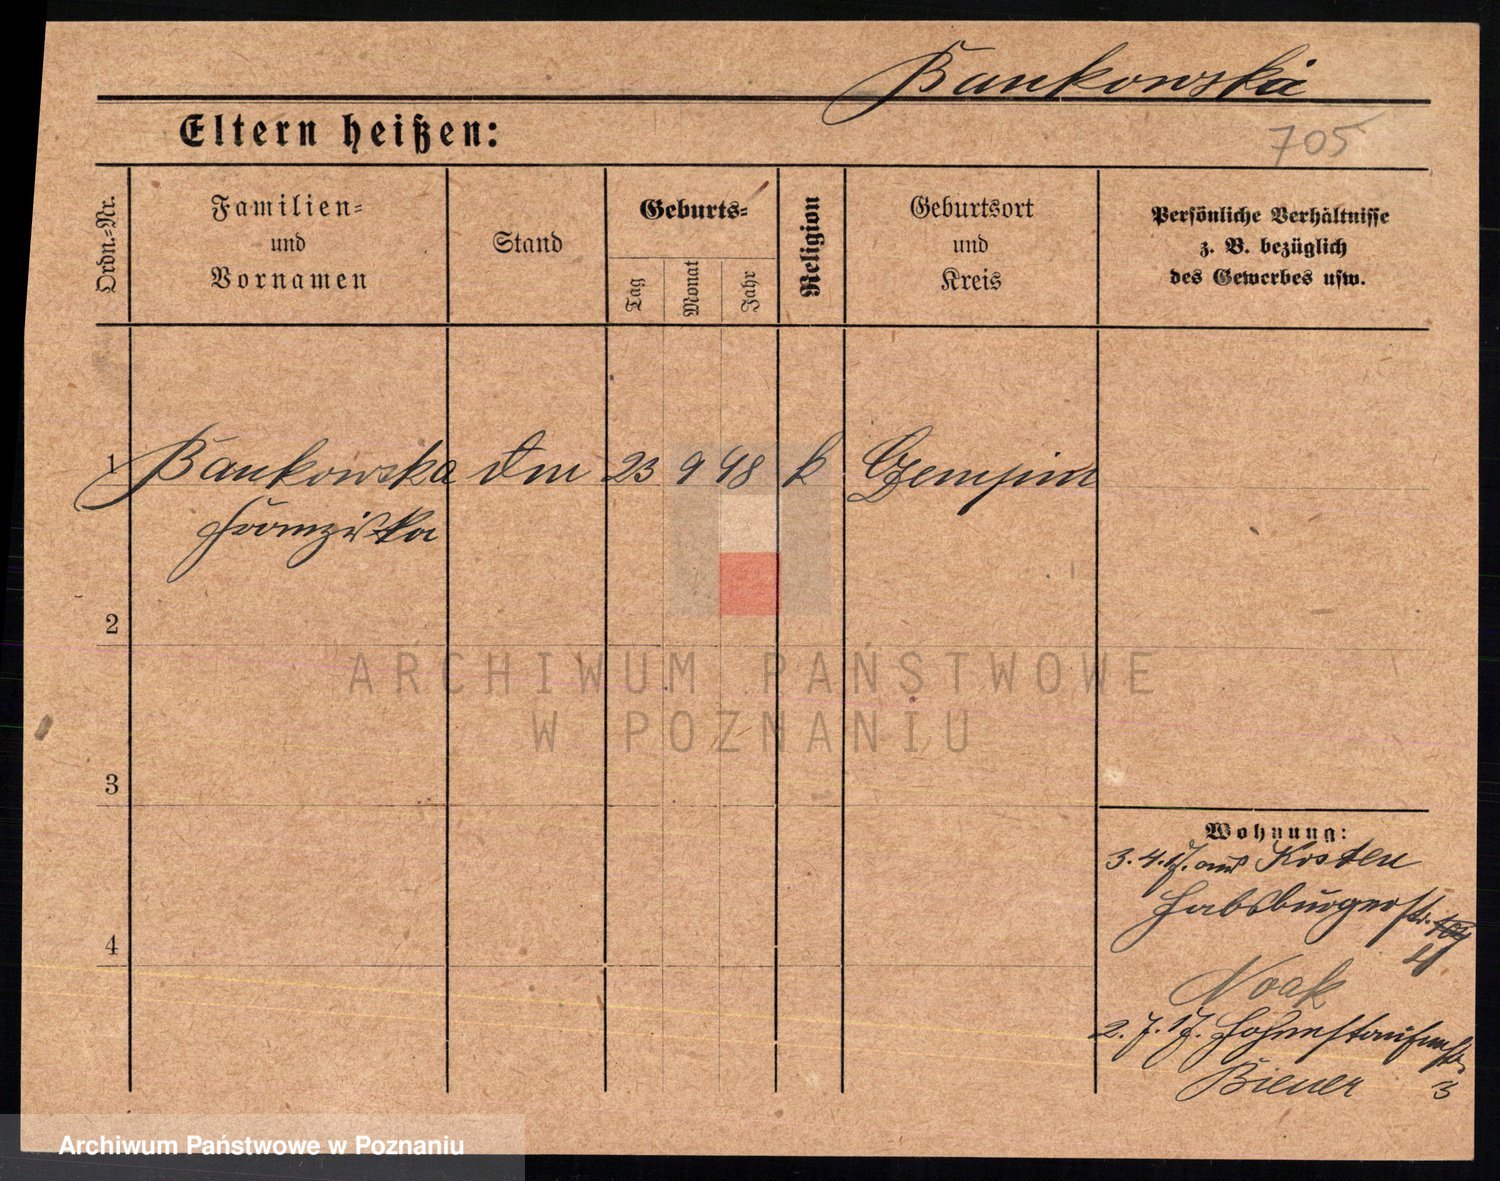 Bankowska
Eltern heißen:
705
Ordn.-Nr.
Familien-
und
Vornamen
Stand
Geburts-
Tag
Monat
Jahr
Religion
Geburtsort
und
Kreis
Persönliche Verhältnisse
z. B. bezüglich
des Gewerbes usw.
1 Bankowska 23 9 98 k Czempin
Franziska
2
3
4
Wohnung:
3. 4. 17. aus Kosten
Habsburgerstr.
Noak
2. 7. 17. Hohenstaufenstr.
Biener 3
ARCHIWUM PAŃSTWOWE
W POZNANIU
Archiwum Państwowe w Poznaniu